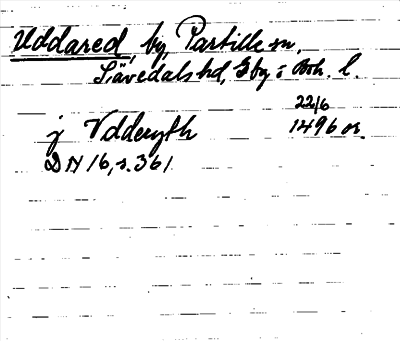 Uddared, by, Partille sn,
Sävedals hd, Gbg o Boh. l.
22/6
j Vdderydh 1496 or.
DN 16, s. 361